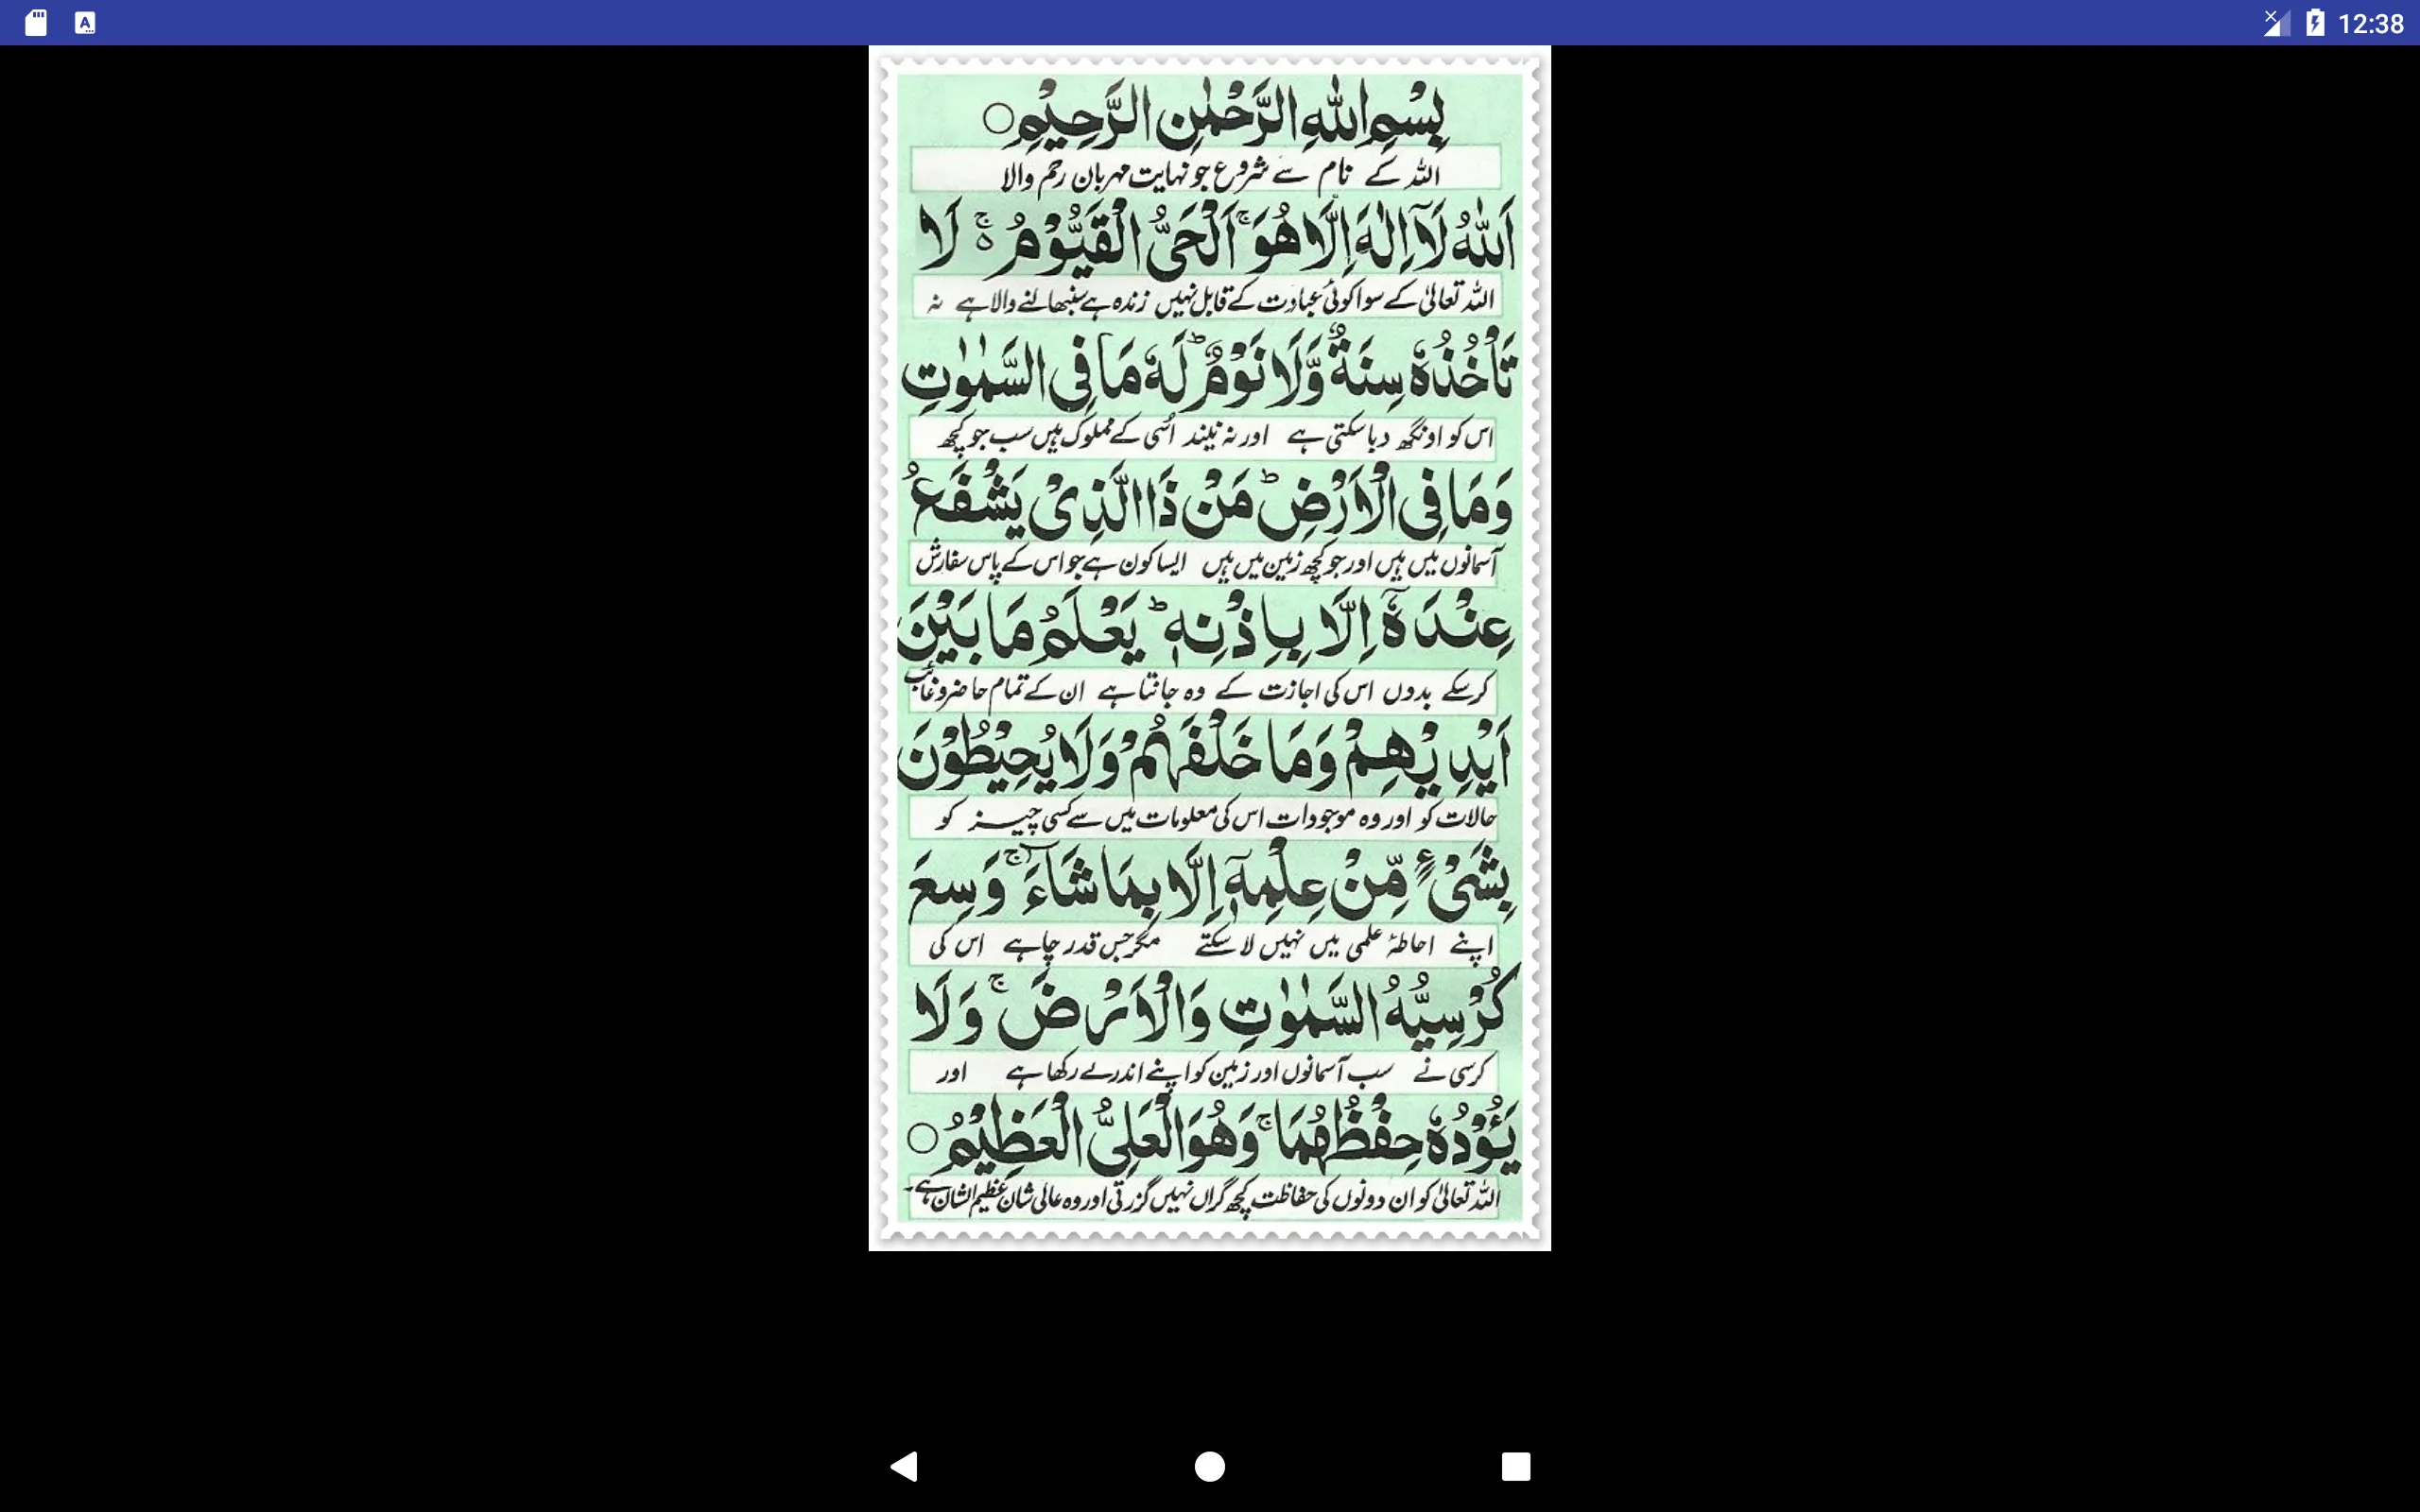 12:38
بِسْمِ اللهِ الرَّحْمٰنِ الرَّحِيْمِ ○
اللہ کے نام سے شروع جو نہایت مہربان رحم والا
اَللهُ لَآ اِلٰهَ اِلَّا هُوَ ۚ اَلْحَيُّ الْقَيُّوْمُ ۚ ەۚ لَا
اللہ تعالیٰ کے سوا کوئی عبادت کے قابل نہیں زندہ ہے سنبھالنے والا ہے نہ
تَاْخُذُهٗ سِنَةٌ وَّلَا نَوْمٌ ؕ لَهٗ مَا فِی السَّمٰوٰتِ
اس کو اونگھ دبا سکتی ہے اور نہ نیند اُسی کے مملوک ہیں سب جو کچھ
وَمَا فِی الْاَرْضِ ؕ مَنْ ذَا الَّذِیْ يَشْفَعُ
آسمانوں میں ہیں اور جو کچھ زمین میں ہیں ایسا کون ہے جو اس کے پاس سفارش
عِنْدَهٗٓ اِلَّا بِاِذْنِهٖ ؕ يَعْلَمُ مَا بَيْنَ
کر سکے بدوں اس کی اجازت کے وہ جانتا ہے ان کے تمام حاضر و غائب
اَيْدِيْهِمْ وَمَا خَلْفَهُمْ ۚ وَلَا يُحِيْطُوْنَ
حالات کو اور وہ موجودات اس کی معلومات میں سے کسی چیز کو
بِشَیْءٍ مِّنْ عِلْمِهٖٓ اِلَّا بِمَا شَآءَ ۚ وَسِعَ
اپنے احاطۂ علمی میں نہیں لا سکتے مگر جس قدر چاہے اس کی
كُرْسِيُّهُ السَّمٰوٰتِ وَالْاَرْضَ ۚ وَلَا
کرسی نے سب آسمانوں اور زمین کو اپنے اندر لے رکھا ہے اور
يَئُوْدُهٗ حِفْظُهُمَا ۚ وَهُوَ الْعَلِیُّ الْعَظِيْمُ ○
اللہ تعالیٰ کو ان دونوں کی حفاظت کچھ گراں نہیں گزرتی اور وہ عالی شان عظیم الشان ہے۔